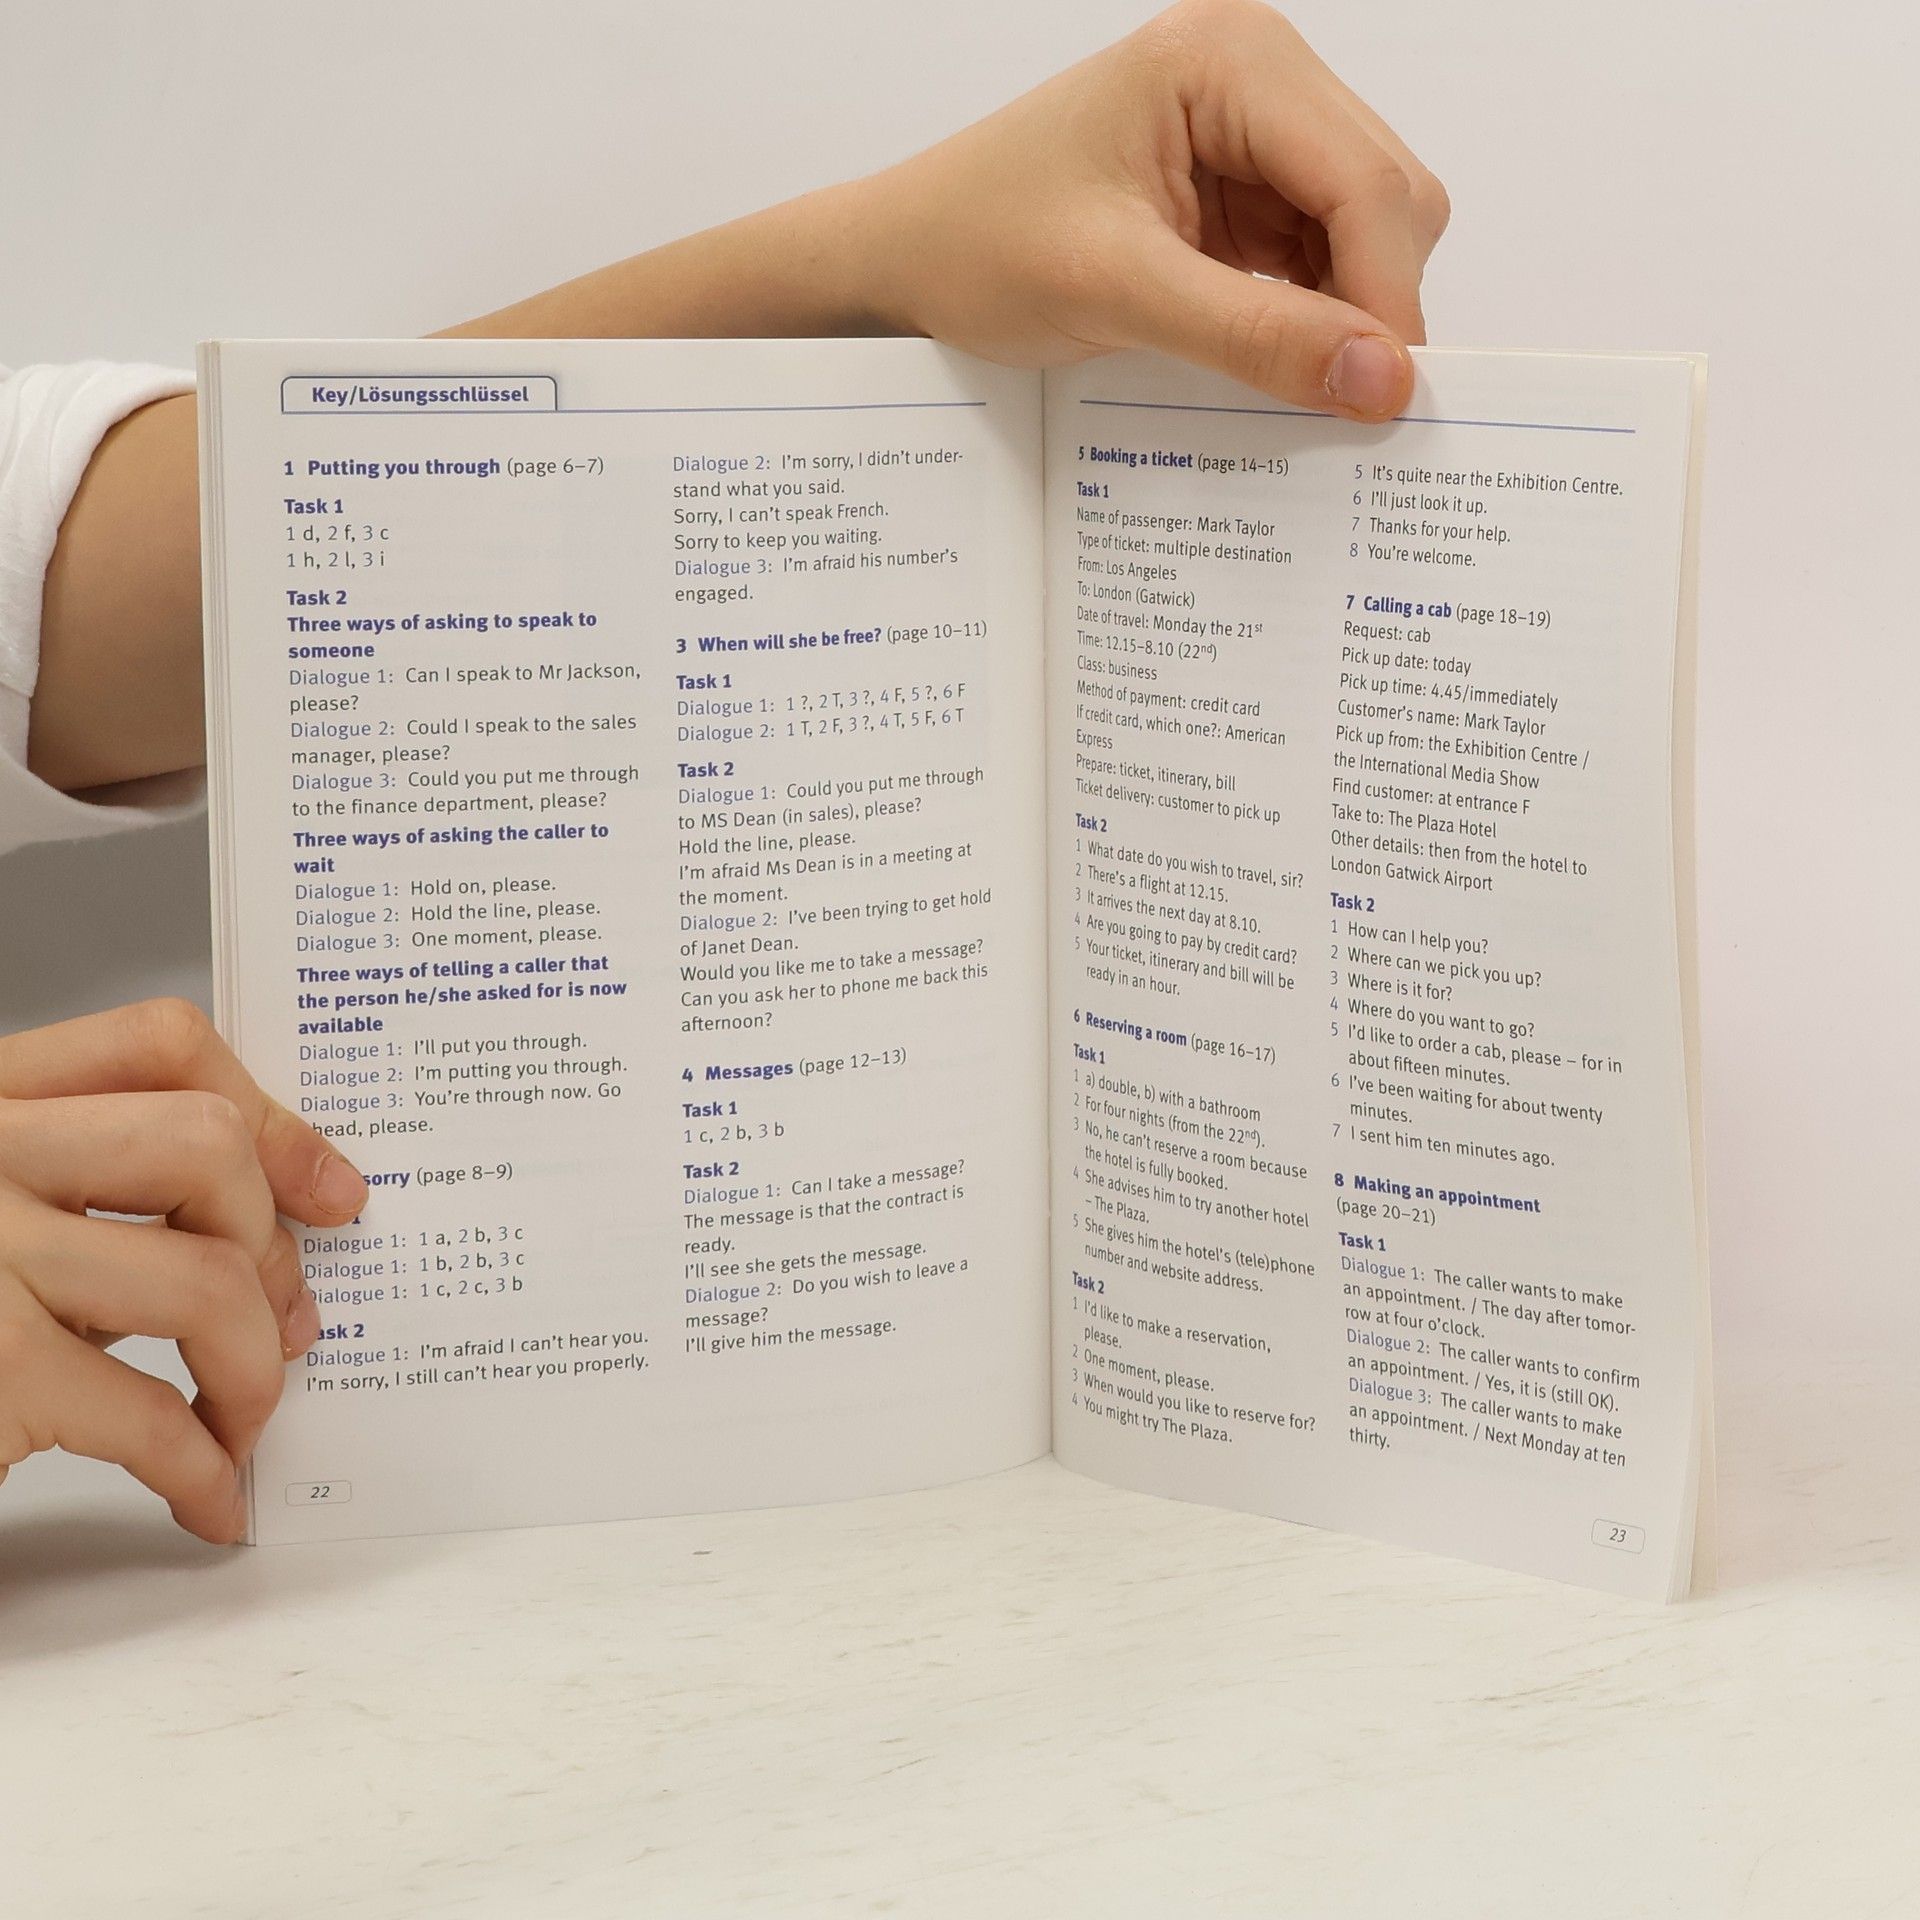 Key/Lösungsschlüssel
1 Putting you through (page 6–7)
Task 1
1 d, 2 f, 3 c
1 h, 2 l, 3 i
Task 2
Three ways of asking to speak to
someone
Dialogue 1: Can I speak to Mr Jackson,
please?
Dialogue 2: Could I speak to the sales
manager, please?
Dialogue 3: Could you put me through
to the finance department, please?
Three ways of asking the caller to
wait
Dialogue 1: Hold on, please.
Dialogue 2: Hold the line, please.
Dialogue 3: One moment, please.
Three ways of telling a caller that
the person he/she asked for is now
available
Dialogue 1: I'll put you through.
Dialogue 2: I'm putting you through.
Dialogue 3: You're through now. Go
head, please.
sorry (page 8–9)
1
Dialogue 1: 1 a, 2 b, 3 c
Dialogue 1: 1 b, 2 b, 3 c
ialogue 1: 1 c, 2 c, 3 b
ask 2
Dialogue 1: I'm afraid I can't hear you.
I'm sorry, I still can't hear you properly.
22
Dialogue 2: I'm sorry, I didn't under-
stand what you said.
Sorry, I can't speak French.
Sorry to keep you waiting.
Dialogue 3: I'm afraid his number's
engaged.
3 When will she be free? (page 10–11)
Task 1
Dialogue 1: 1 ?, 2 T, 3 ?, 4 F, 5 ?, 6 F
Dialogue 2: 1 T, 2 F, 3 ?, 4 T, 5 F, 6 T
Task 2
Dialogue 1: Could you put me through
to MS Dean (in sales), please?
Hold the line, please.
I'm afraid Ms Dean is in a meeting at
the moment.
Dialogue 2: I've been trying to get hold
of Janet Dean.
Would you like me to take a message?
Can you ask her to phone me back this
afternoon?
4 Messages (page 12–13)
Task 1
1 c, 2 b, 3 b
Task 2
Dialogue 1: Can I take a message?
The message is that the contract is
ready.
I'll see she gets the message.
Dialogue 2: Do you wish to leave a
message?
I'll give him the message.
5 Booking a ticket (page 14–15)
Task 1
Name of passenger: Mark Taylor
Type of ticket: multiple destination
From: Los Angeles
To: London (Gatwick)
Date of travel: Monday the 21st
Time: 12.15–8.10 (22nd)
Class: business
Method of payment: credit card
If credit card, which one?: American
Express
Prepare: ticket, itinerary, bill
Ticket delivery: customer to pick up
Task 2
1 What date do you wish to travel, sir?
2 There's a flight at 12.15.
3 It arrives the next day at 8.10.
4 Are you going to pay by credit card?
5 Your ticket, itinerary and bill will be
ready in an hour.
6 Reserving a room (page 16–17)
Task 1
1 a) double, b) with a bathroom
2 For four nights (from the 22nd).
3 No, he can't reserve a room because
the hotel is fully booked.
4 She advises him to try another hotel
– The Plaza.
5 She gives him the hotel's (tele)phone
number and website address.
Task 2
1 I'd like to make a reservation,
please.
2 One moment, please.
3 When would you like to reserve for?
4 You might try The Plaza.
5 It's quite near the Exhibition Centre.
6 I'll just look it up.
7 Thanks for your help.
8 You're welcome.
7 Calling a cab (page 18–19)
Request: cab
Pick up date: today
Pick up time: 4.45/immediately
Customer's name: Mark Taylor
Pick up from: the Exhibition Centre /
the International Media Show
Find customer: at entrance F
Take to: The Plaza Hotel
Other details: then from the hotel to
London Gatwick Airport
Task 2
1 How can I help you?
2 Where can we pick you up?
3 Where is it for?
4 Where do you want to go?
5 I'd like to order a cab, please – for in
about fifteen minutes.
6 I've been waiting for about twenty
minutes.
7 I sent him ten minutes ago.
8 Making an appointment
(page 20–21)
Task 1
Dialogue 1: The caller wants to make
an appointment. / The day after tomor-
row at four o'clock.
Dialogue 2: The caller wants to confirm
an appointment. / Yes, it is (still OK).
Dialogue 3: The caller wants to make
an appointment. / Next Monday at ten
thirty.
23